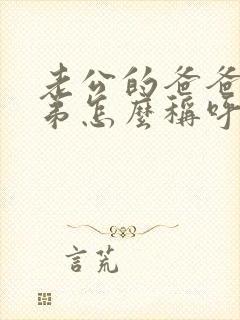 老公的爸爸
弟怎麼稱呼
言荒